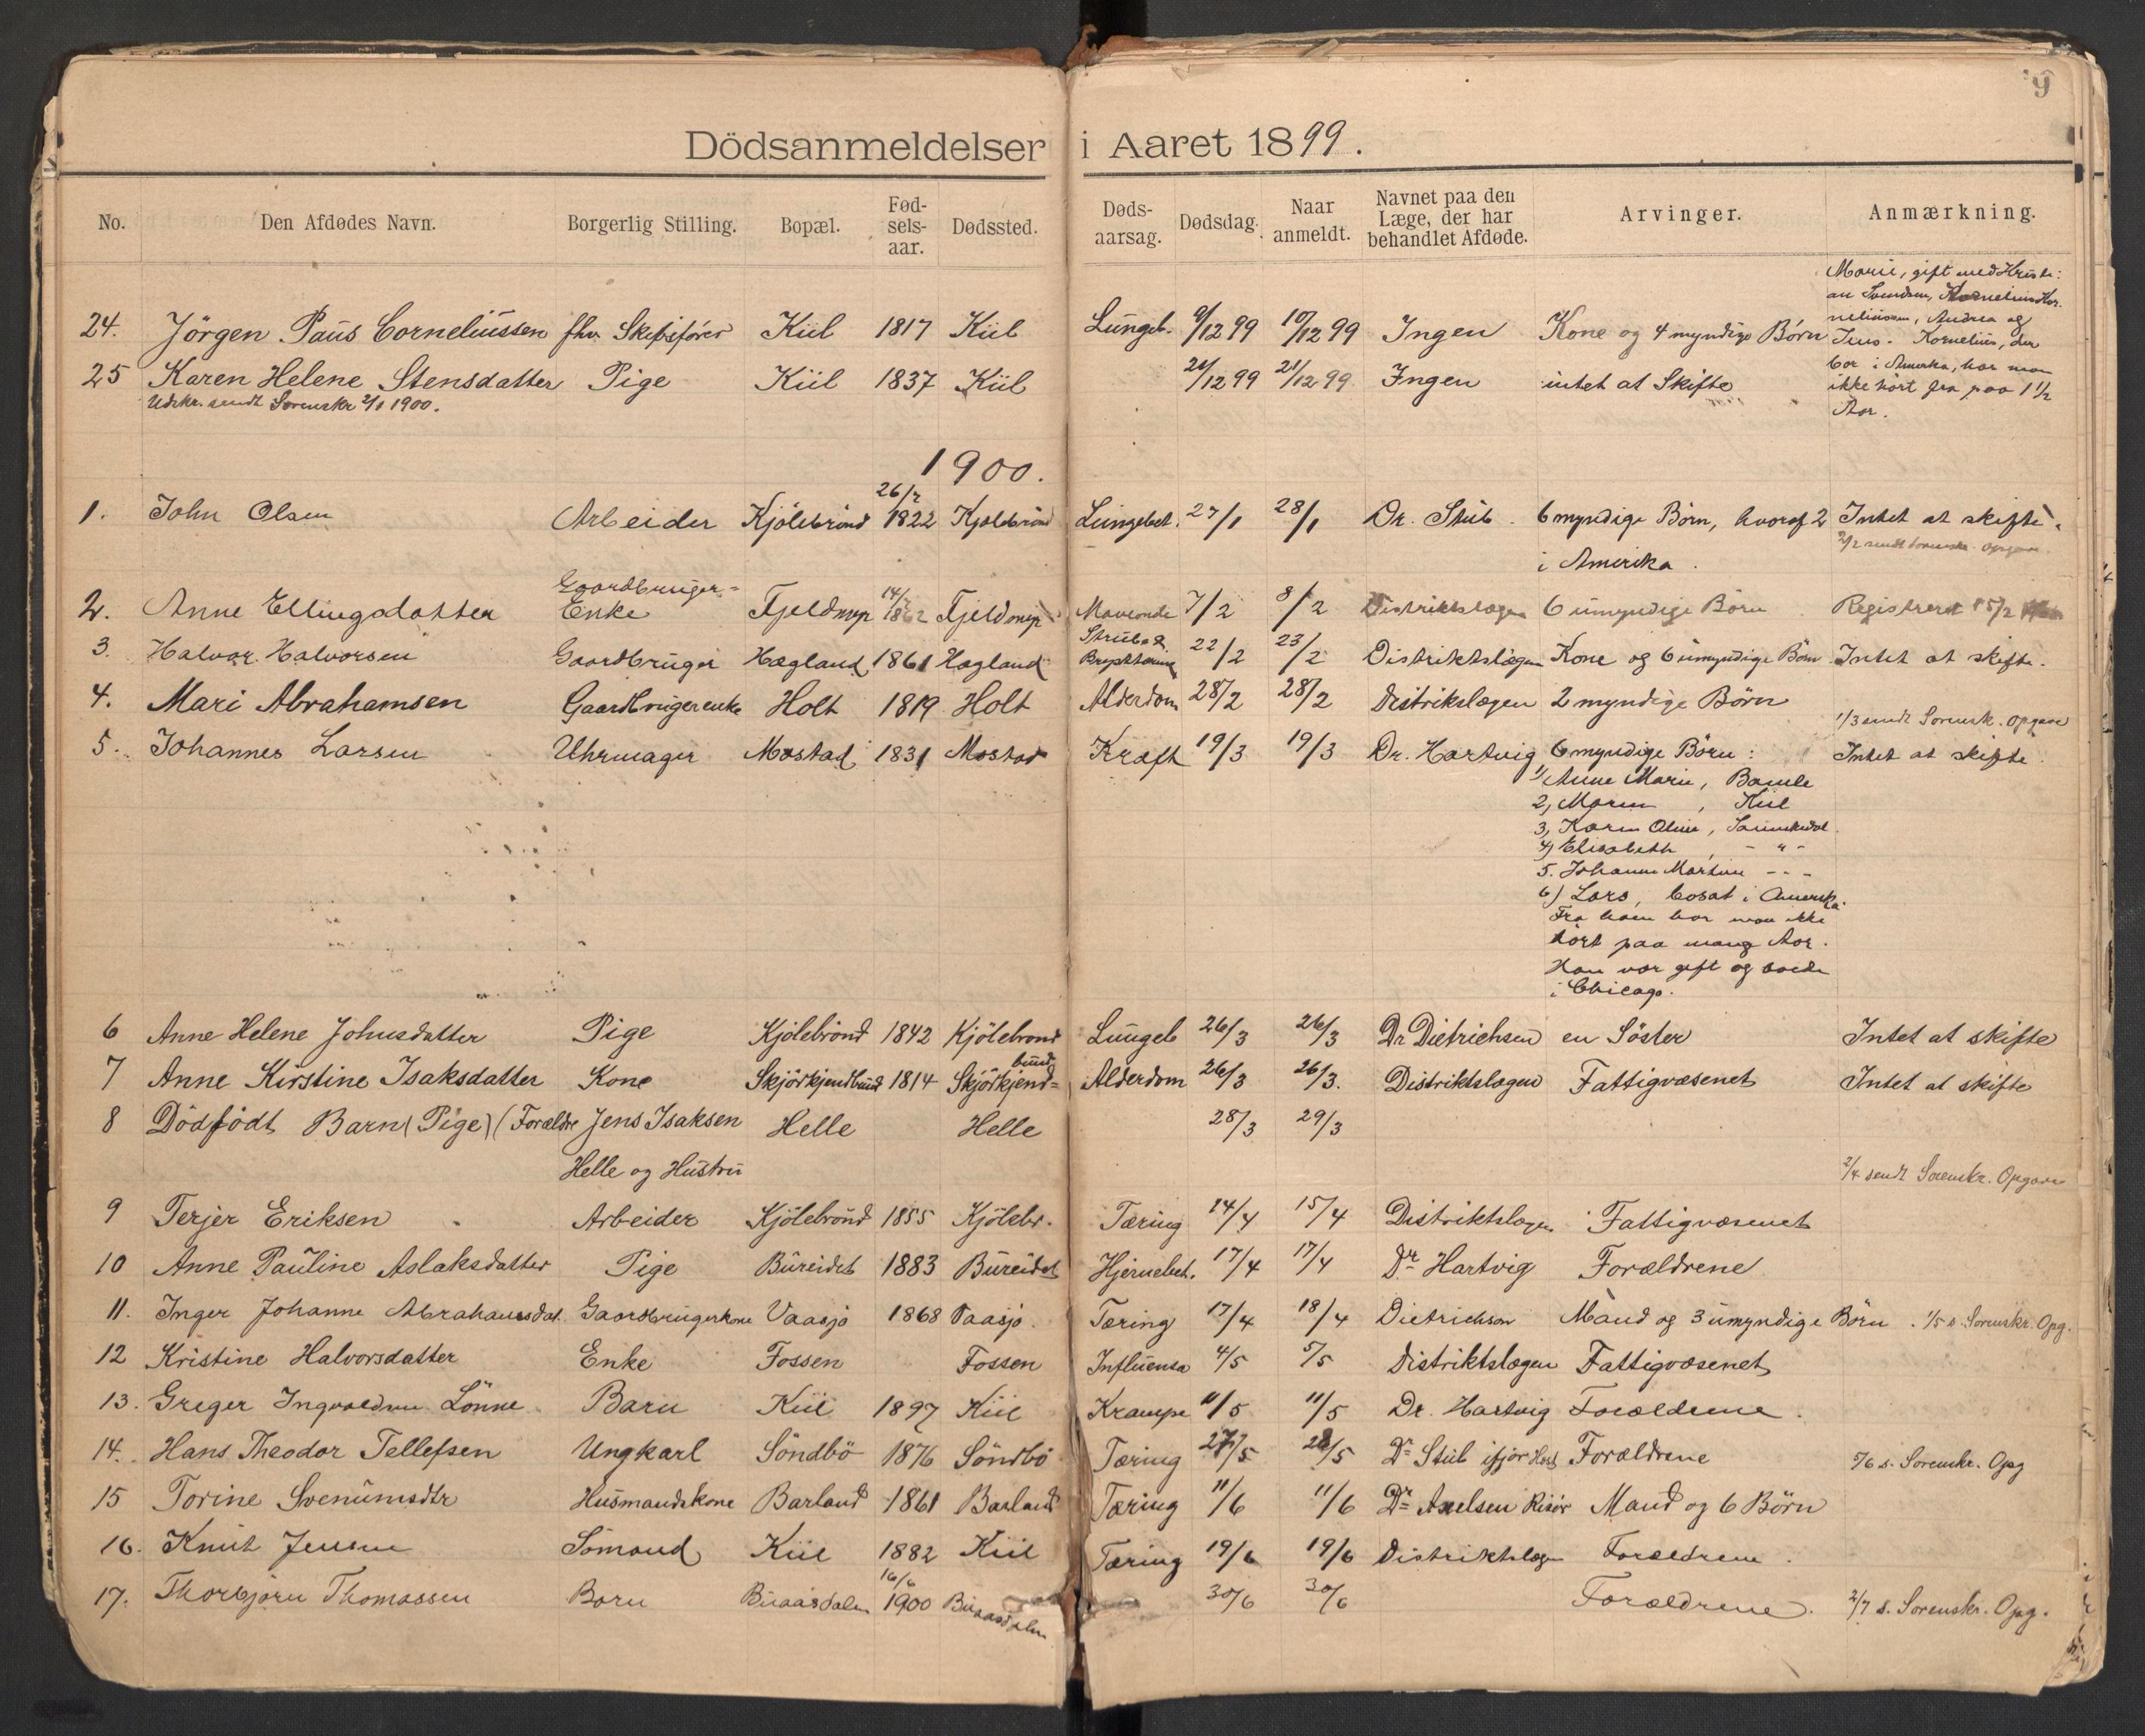 9
Dödsanmeldelser i Aaret 1899.
No. Den Afdødes Navn. Borgerlig Stilling. Bopæl. Fød-sels-aar. Dødssted. Døds-aarsag. Dødsdag. Naar anmeldt. Navnet paa den Læge, der har behandlet Afdøde. Arvinger. Anmærkning.
24. Jörgen Paus Corneliussen fhv. Skibsfører Kiil 1817 Kiil Lungeb. 9/12 99 10/12 99 Ingen Kone og 4 myndige Börn
Marie, gift med Kristi:
an Svendsen, Kornelius Kor.
neliussen, Andrea og
Jens. Kornelius, der
bor i Amerika, har man
ikke hört fra paa 1 1/2
Aar.
25 Karen Helene Stensdatter Pige Kiil 1837 Kiil 21/12 99 21/12 99 Ingen intet at Skifte
Udskr. sendt Sorenskr 2/1 1900.
1900.
1. John Olsen Arbeider Kjölebrönd 26/2 1822 Kjölebrönd Lungebet. 27/1 28/1 Dr. Stub. 6 myndige Börn, hvoraf 2 Intet at skifte.
i Amerika. 2/2 sendt Sorenskr. Opgave.
2. Anne Ellingsdatter Gaardbruger= Enke Fjeldmyr 1862 Fjeldmyr Maveonde 7/2 8/2 Distriktslægen 6 umyndige Börn Registreret 15/2
3. Halvor Halvorsen Gaardbruger Hægland 1861 Hægland Strube & Brysttæring 22/2 23/2 Distriktslægen Kone og 6 umyndige Börn Intet at skifte.
4. Mari Abrahamsen Gaardbrugerenke Holt 1819 Holt Alderdom 28/2 28/2 Distrikslægen 2 myndige Börn
1/3 sendt Sorensk. Opgave
5. Johannes Larsen Uhrmager Mostad 1831 Mostad Kræft 19/3 19/3 Dr. Hartvig 6 myndige Börn: Intet at skifte.
1) Anne Marie, Bamle
2, Maren, Kiil
3, Karen Oline, Sannikedal.
4) Elisabeth, - " -
5. Johanne Martine - - -
6) Lars, bosat i Amerika.
Fra ham har man ikke
hört paa mange Aar.
Han var gift og boede
i Chicago.
6 Anne Helene Johnsdatter Pige Kjölebrönd 1842 Kjölebrönd Lungeb 26/3 26/3 Dr Dietrichsen en Söster Intet at skifte
7 Anne Kirstine Isaksdatter Kone Skjörkjendbund 1814 Skjörkjend=bund Alderdom 26/3 26/3. Distriktslægen Fattigvæsenet Intet at skifte
8 Dödfödt Barn (Pige) (Forældre Jens Isaksen Helle Helle 28/3 29/3
Helle og Hustru 2/4 sendt Sorenskr. Opgave
9 Terjer Eriksen Arbeider Kjölebrönd 1855 Kjölebr. Tæring 14/4 15/4 Distriktslægen Fattigvæsenet
10 Anne Pauline Aslaksdatter Pige Bureidet 1883 Bureidet Hjernebet. 17/4 17/4 Dr Hartvig Forældrene
11. Inger Johanne Abrahamsdat. Gaardbrugerkone Vaasjø 1868 Vaasjø. Tæring 17/4 18/4 Dietrichson Mand og 3 umyndige Börn. 1/5 s. Sorenskr. Opg.
12 Kristine Halvorsdatter Enke Fossen Fossen Influensa 4/5 5/5 Distriktslægen Fattigvæsenet
13. Greger Ingvaldsen Lönne Barn Kiil 1897 Kiil Krampe 11/5 11/5 Dr. Hartvig Forældrene.
14. Hans Theodor Tellefsen Ungkarl Söndbö 1876 Söndbö Tæring 27/5 28/5 Dr Stub ifjor Høst Forældrene 1/6 s. Sorenskr. Opg
15 Torine Svenumsdtr Husmandskone Barland 1861 Barland Tæring 11/6 11/6 Dr Axelsen Risör Mand og 6 Börn
16. Knut Jensen Sömand Kiil 1882 Kiil Tæring 19/6 19/6 Distriktslægen Forældrene.
17. Thorbjørn Thomassen Barn Buaasdalen 16/6 1900 Buaasdalen 30/6 30/6 Forældrene. 2/7 s. Sorenskr. Opg.